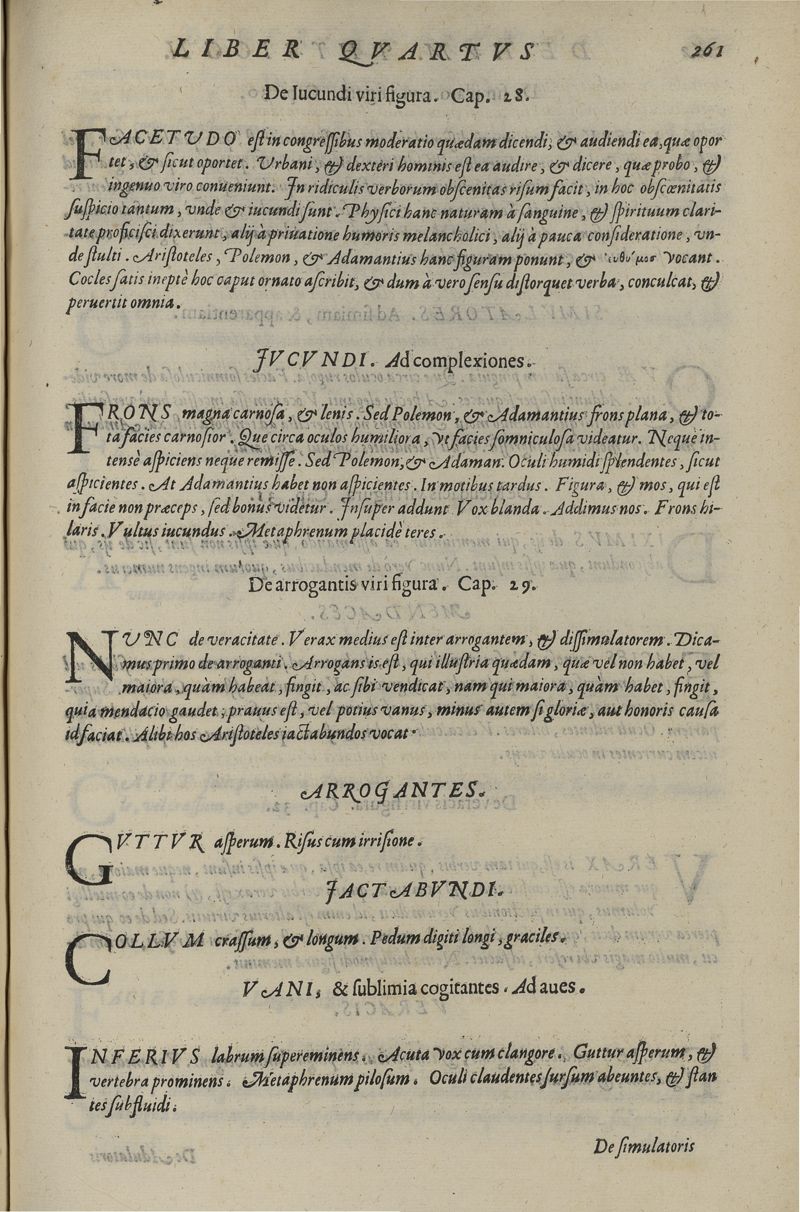 LIBER QVARTVS 261
De Iucundi viri figura. Cap. 28.
FACETVDO est in congressibus moderatio quædam dicendi, & audiendi ea, quæ opor
tet, & sicut oportet. Vrbani, & dexteri hominis est ea audire, & dicere, quæ probo, &
ingenuo viro conueniunt. In ridiculis verborum obscenitas risum facit, in hoc obscœnitatis
suspicio tantum, vnde & iucundi sunt. Physici hanc naturam à sanguine, & spirituum clari-
tate proficisci dixerunt, alij à priuatione humoris melancholici, alij à pauca consideratione, vn-
de stulti. Aristoteles, Polemon, & Adamantius hanc figuram ponunt, & vocant.
Cocles satis ineptè hoc caput ornato ascribit, & dum à vero sensu distorquet verba, conculcat, &
peruertit omnia.
IVCVNDI. Ad complexiones.
FRONS magna carnosa, & lenis. Sed Polemon, & Adamantius frons plana, & to-
ta facies carnosior. Que circa oculos humiliora, vt facies somniculosa videatur. Neque in-
tensè aspiciens neque remisse. Sed Polemon, & Adaman. Oculi humidi splendentes, sicut
aspicientes. At Adamantius habet non aspicientes. In motibus tardus. Figura, & mos, qui est
in facie non præceps, sed bonus videtur. Insuper addunt Vox blanda. Addimus nos. Frons hi-
laris. Vultus iucundus. Metaphrenum placidè teres.
De arrogantis viri figura. Cap. 29.
NVNC de veracitate. Verax medius est inter arrogantem, & dissimulatorem. Dica-
mus primo de arroganti. Arrogans is est, qui illustria quædam, quæ vel non habet, vel
maiora, quàm habeat, fingit, ac sibi vendicat, nam qui maiora, quàm habet, fingit,
quia mendacio gaudet, prauus est, vel potius vanus, minus autem si gloriæ, aut honoris causa
id faciat. Alibi hos Aristoteles iactabundos vocat.
ARROGANTES.
GVTTVR asperum. Risus cum irrisione.
IACTABVNDI.
COLLVM crassum, & longum. Pedum digiti longi, graciles.
VANI, & sublimia cogitantes. Ad aues.
INFERIVS labrum supereminens. Acuta vox cum clangore. Guttur asperum, &
vertebra prominens. Metaphrenum pilosum. Oculi claudentes sursum abeuntes, & stan
tes subfluidi.
De simulatoris